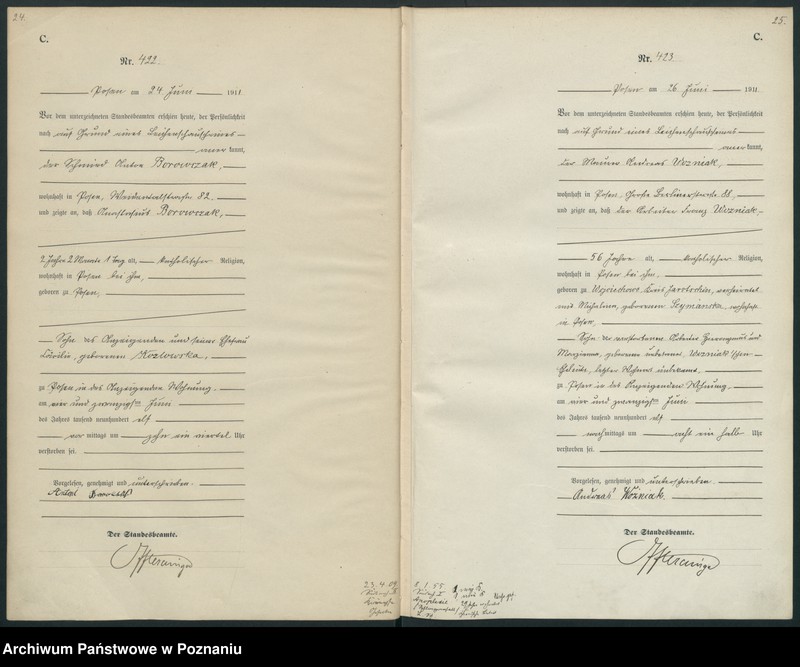 24.
C.
Nr. 422.
Posen am 24 Juni 1911
Vor dem unterzeichneten Standesbeamten erschien heute, der Persönlichkeit
nach auf Grund eines Leichenschauscheines
anerkannt,
der Schmied Anton Borowczak,
wohnhaft in Posen, 82.
und zeigte an, daß Anastasius Borowczak,
2 Jahre 2 Monate 1 Tag alt, katholischer Religion,
wohnhaft in Posen bei ihm,
geboren zu Posen,
Sohn des Anzeigenden und seiner Ehefrau
Cäcilie, geborenen Kozlowska,
zu Posen in des Anzeigenden Wohnung,
am vier und zwanzigsten Juni
des Jahres tausend neunhundert elf
vormittags um zehn ein viertel Uhr
verstorben sei.
Vorgelesen, genehmigt und unterschrieben.
Der Standesbeamte.
25.
C.
Nr. 423.
Posen am 26 Juni 1911
Vor dem unterzeichneten Standesbeamten erschien heute, der Persönlichkeit
nach auf Grund eines Leichenschauscheines
anerkannt,
der Maurer Andreas Wozniak,
wohnhaft in Posen, Große Berlinerstraße 88,
und zeigte an, daß der Arbeiter Franz Wozniak,
56 Jahre alt, katholischer Religion,
wohnhaft in Posen bei ihm,
geboren zu Kreis Jarotschin, verheiratet
mit Michalina, geborenen wohnhaft
in Posen,
Sohn der verstorbenen Arbeiter und
Marianna, geborene unbekannt, Wozniak'schen
Eheleute, letzter Wohnort unbekannt,
zu Posen in des Anzeigenden Wohnung,
am vier und zwanzigsten Juni
des Jahres tausend neunhundert elf
nachmittags um acht ein halb Uhr
verstorben sei.
Vorgelesen, genehmigt und unterschrieben.
Andreas Wozniak
Der Standesbeamte.
Archiwum Państwowe w Poznaniu